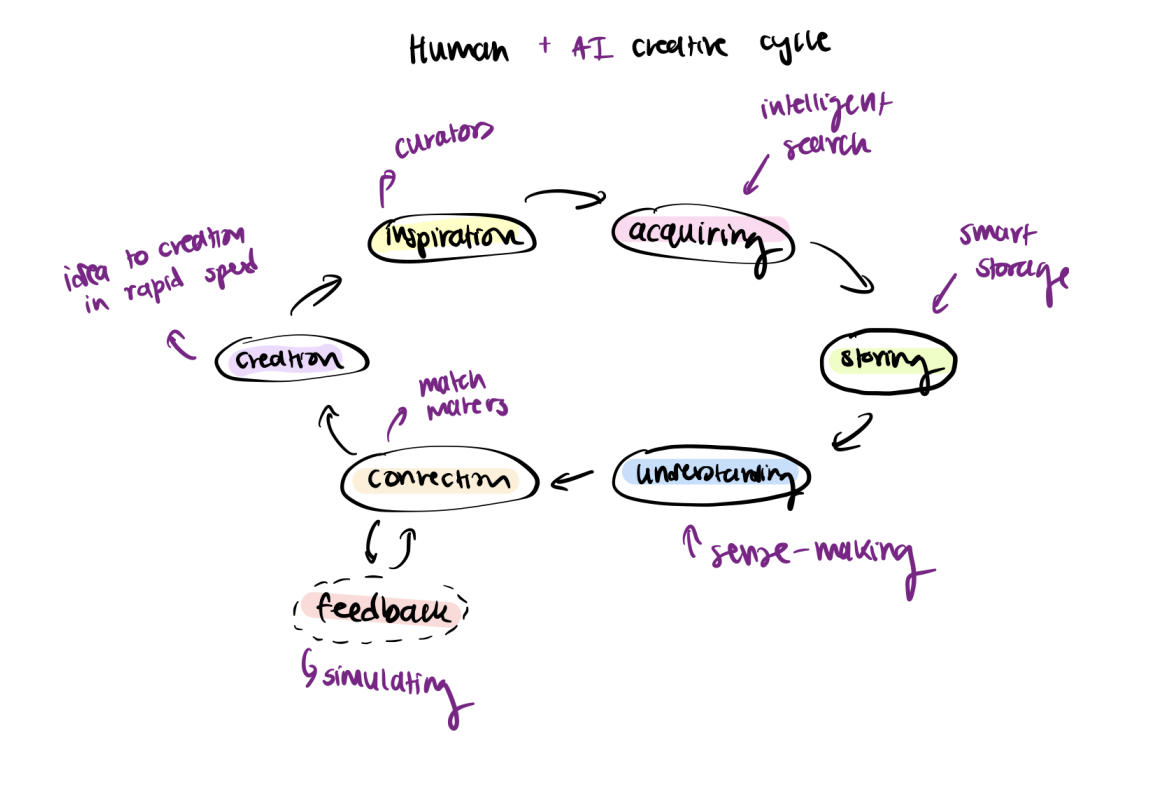 Human + AI creative cycle
intelligent
search
curators
inspiration
acquiring
smart
storage
idea to creation
in rapid speed
creation
storing
match
makers
connection
understanding
sense-making
feedback
simulating